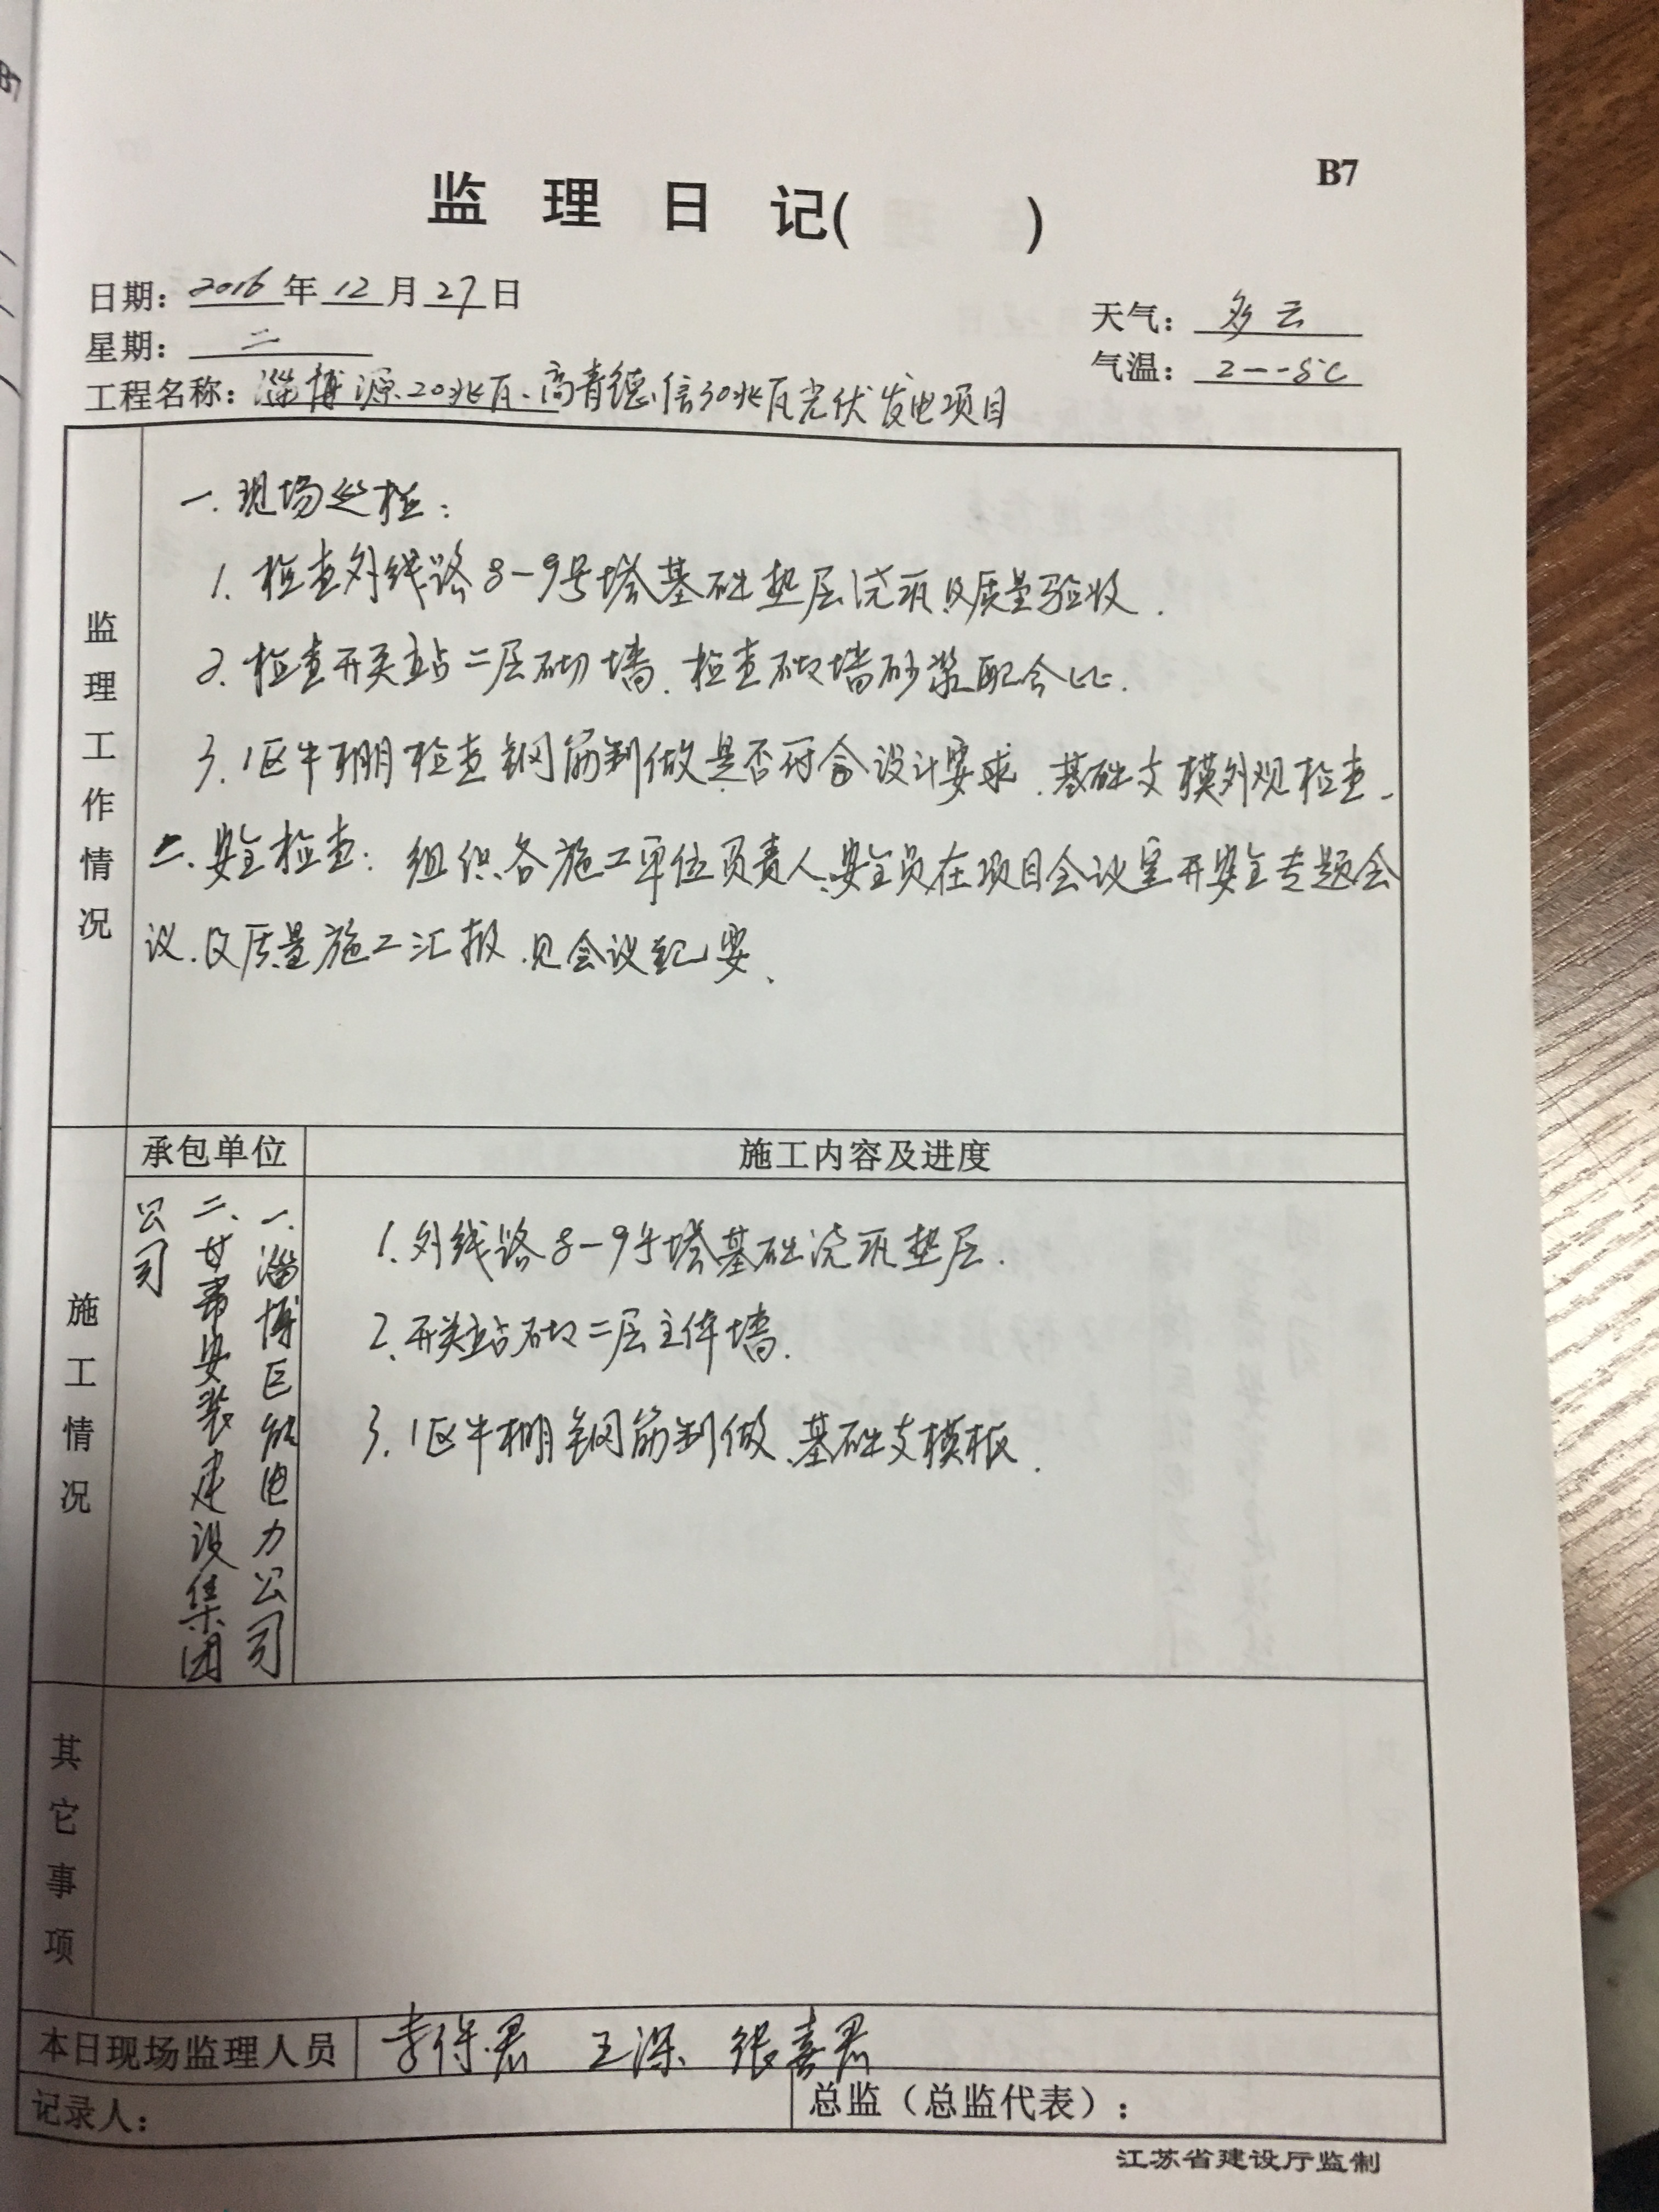 B7
监 理 日 记( )
日期：2016年12月27日
天气：多云
星期：二
气温：2--8℃
工程名称：淄博源20兆瓦、高青德信30兆瓦光伏发电项目
监理工作情况
一.现场巡检：
1. 检查外线路8-9号塔基础垫层浇筑及质量验收.
2. 检查开关站二层砌墙.检查砌墙砂浆配合比.
3. 1区牛棚检查钢筋制做是否符合设计要求.基础支模外观检查.
二.安全检查：组织各施工单位负责人、安全员在项目会议室开安全专题会
议.及质量施工汇报.见会议纪要.
承包单位
施工内容及进度
施工情况
一.淄博巨能电力公司
二.甘肃安装建设集团
公司
1.外线路8-9号塔基础浇筑垫层.
2.开关站砌二层主体墙.
3.1区牛棚钢筋制做、基础支模板.
其它事项
本日现场监理人员 李保君 王深 张喜君
记录人：
总监（总监代表）：
江苏省建设厅监制